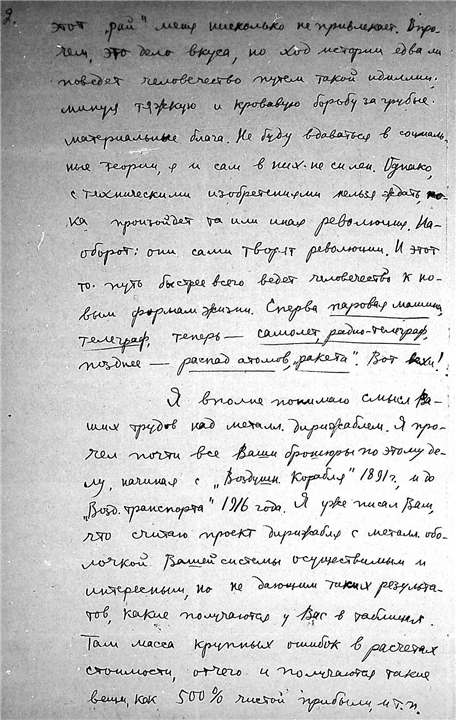 2.
этот „рай" меня нисколько не привлекает. Впро-
чем, это дело вкуса, но ход истории едва ли
поведет человечество путем такой идиллии,
минуя тяжкую и кровавую борьбу за грубые
материальные блага. Не буду вдаваться в социаль-
ные теории, я и сам в них не силен. Однако,
с техническими изобретениями нельзя ждать по-
ка произойдет та или иная революция. На-
оборот: они сами творят революции. И этот
то путь быстрее всего ведет человечество к но-
вым формам жизни. Сперва паровая машина,
телеграф, теперь — самолет, радио-телеграф,
позднее — распад атомов, „ракета". Вот вехи!
Я вполне понимаю смысл Ва-
ших трудов над металл. дирижаблем. Я про-
чел почти все Ваши брошюры по этому де-
лу, начиная с „Воздушн. Корабля" 1891 г., и до
„Возд. транспорта" 1916 года. Я уже писал Вам,
что считаю проект дирижабля с металл. обо-
лочкой Вашей системы осуществимым и
интересным, но не дающим таких результа-
тов, какие получаются у Вас в таблицах.
Там масса крупных ошибок в расчетах
стоимости, отчего и получаются такие
вещи, как 500% чистой прибыли, и т.п.